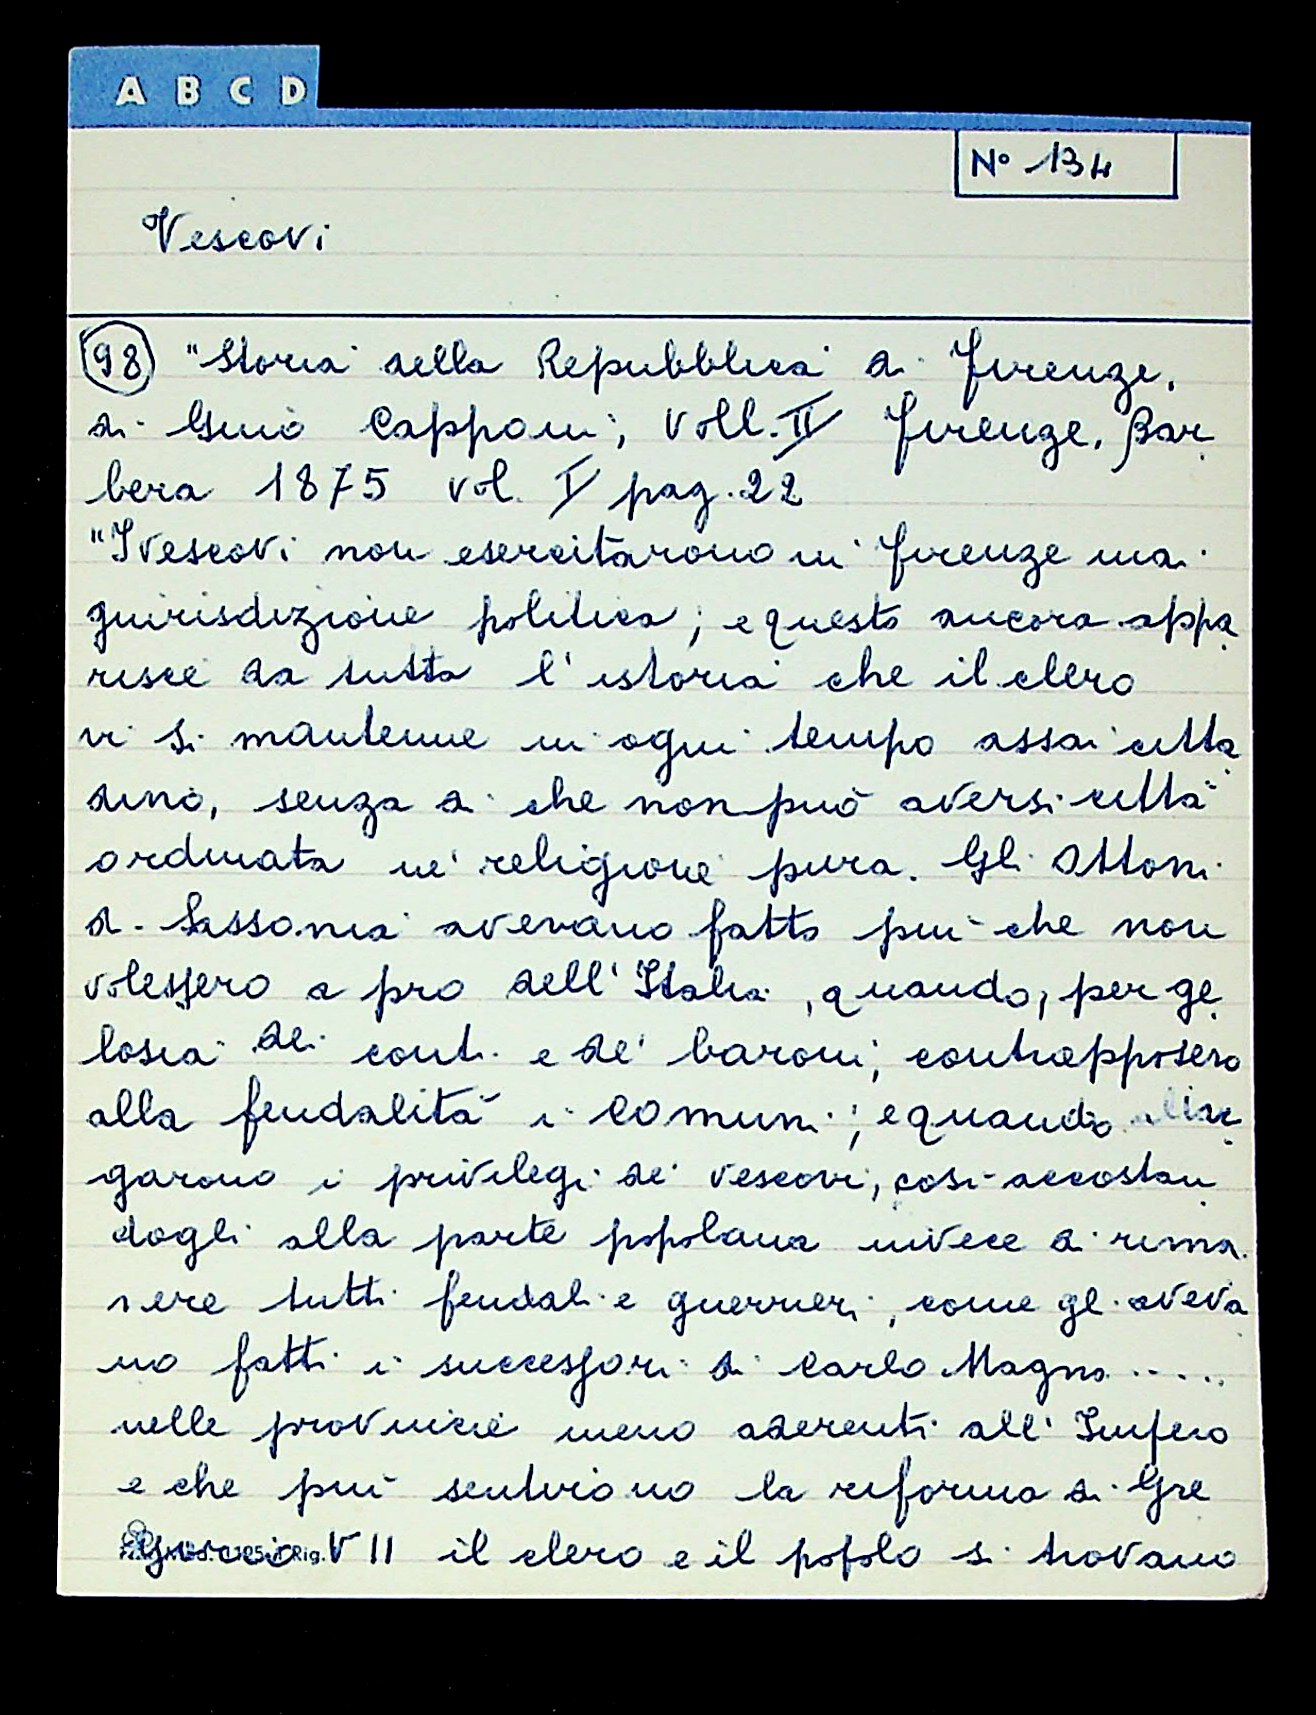 A B C D
N° 134
Vescovi
98 "Storia della Repubblica di Firenze,
di Gino Capponi, Voll. II Firenze, Bar
bera 1875 vol. I pag. 22
"I vescovi non esercitarono in Firenze mai
giurisdizione politica; e questo ancora appa
risce da tutta l'istoria che il clero
vi si mantenne in ogni tempo assai citta
dino, senza di che non può aversi città
ordinata né religione pura. Gli Ottoni
di Sassonia avevano fatto più che non
volessero a pro dell'Italia, quando, per ge
losia dei conti e de' baroni, contrapposero
alla feudalità i comuni; e quando
garono i privilegi de' vescovi, così accostan
dogli alla parte popolana invece di rima
nere tutti feudali e guerrieri, come gli aveva
no fatti i successori di Carlo Magno .....
nelle provincie meno aderenti all'Impero
e che più sentirono la riforma di Gre
gorio VII il clero e il popolo si trovano